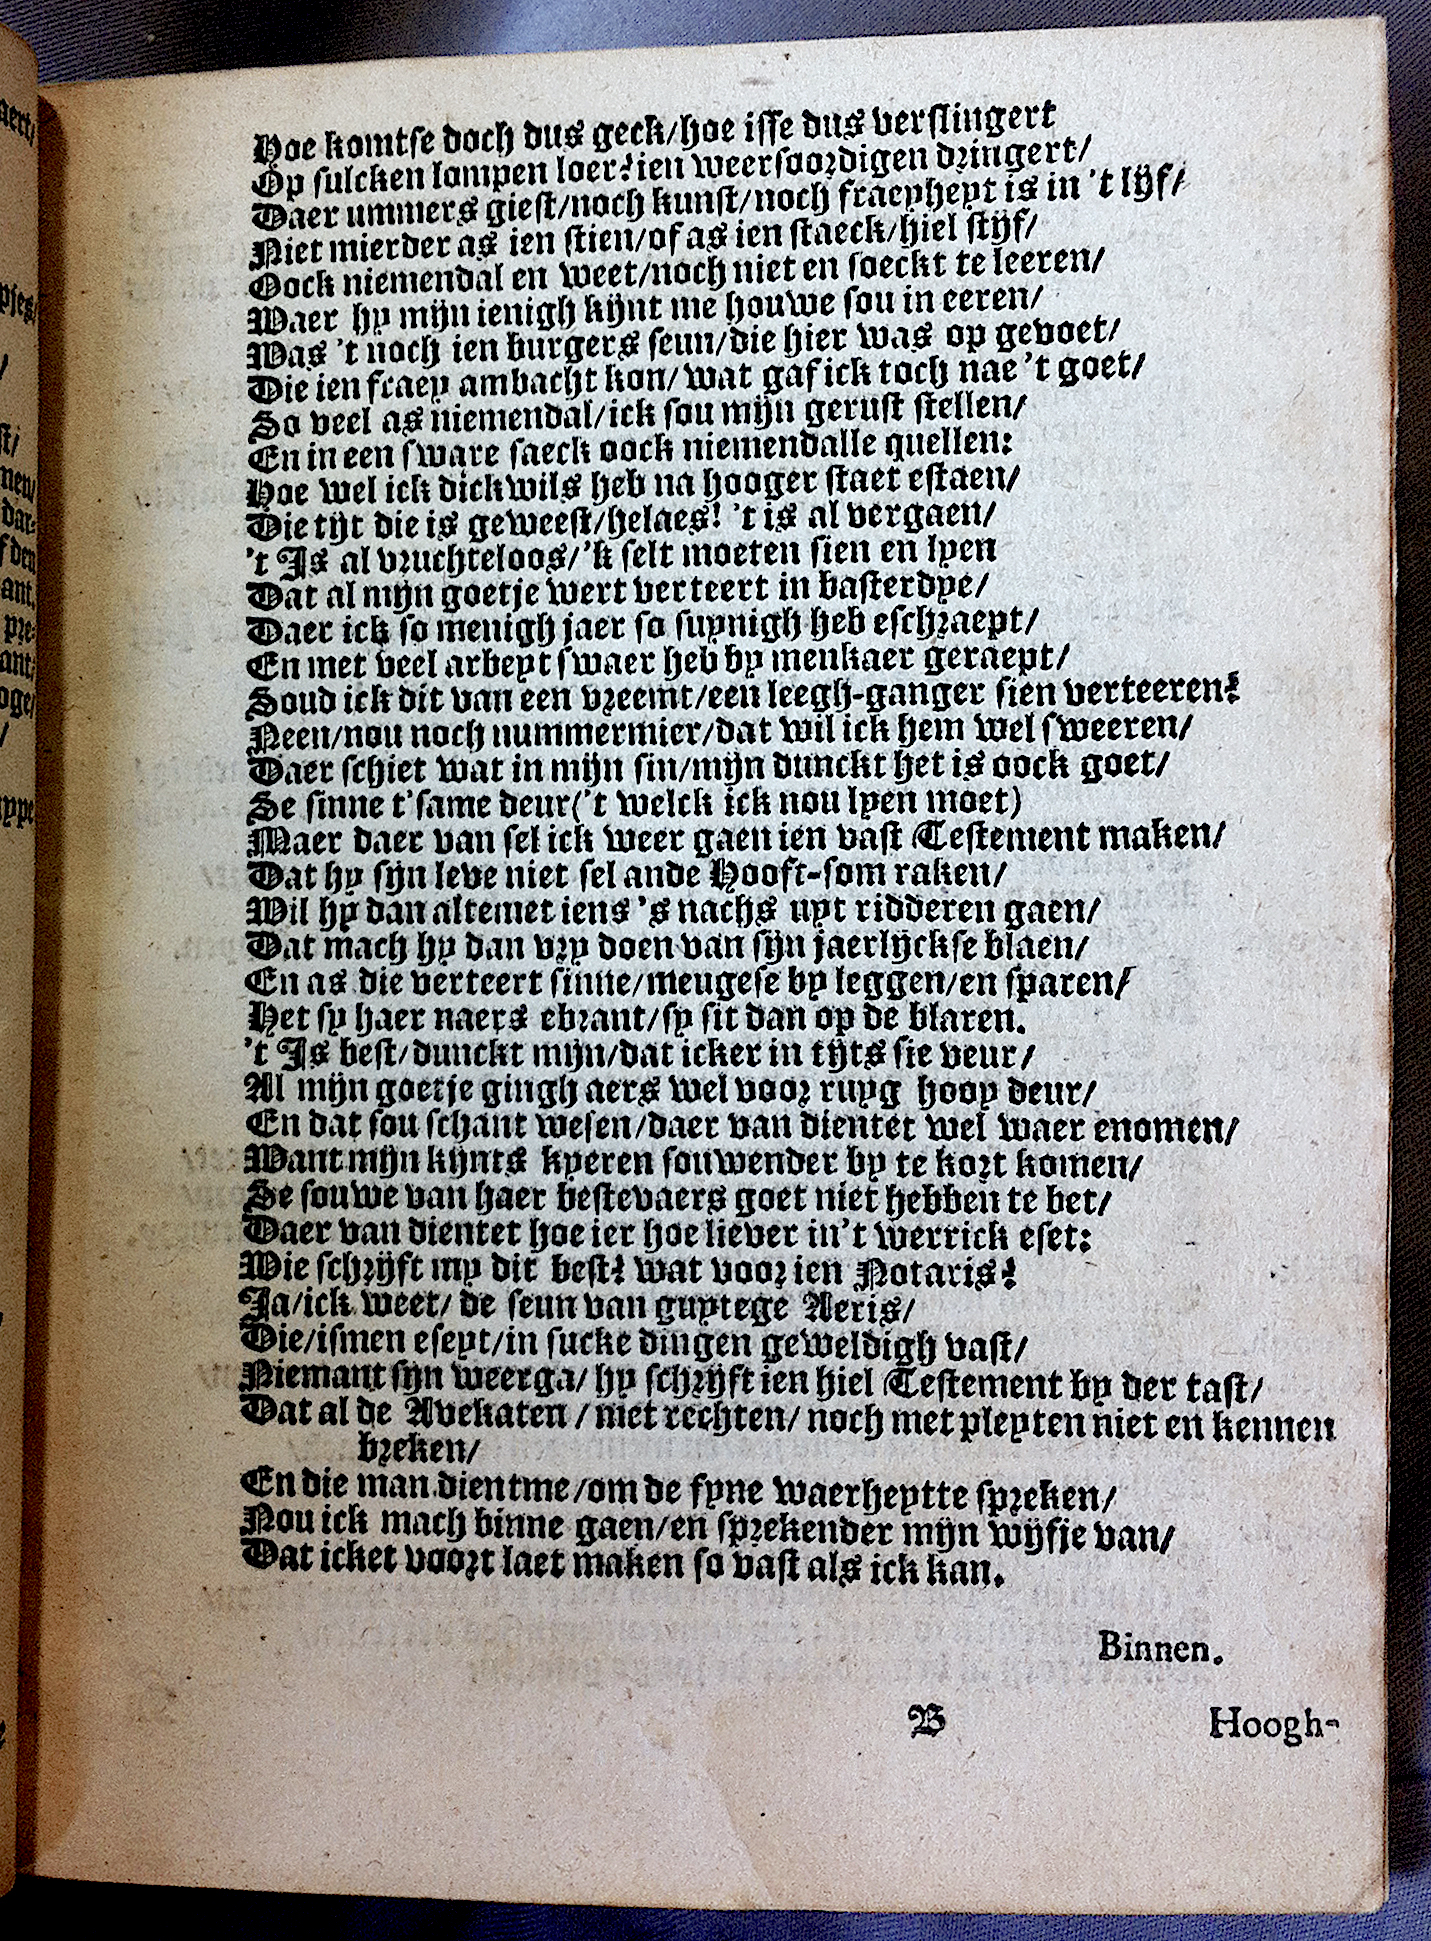 Hoe komtse doch dus geck/hoe isse dus verslingert
Op sulcken lompen loer? ien weersoordigen dringert/
Daer ummers giest/noch kunst/noch fraeyheyt is in 't lijf/
Niet mierder as ien stien/of as ien staeck/hiel stijf/
Oock niemendal en weet/noch niet en soeckt te leeren/
Waer hy mijn ienigh kijnt me houwe sou in eeren/
Was 't noch ien burgers seun/die hier was op gevoet/
Die ien fraey ambacht kon/wat gaf ick toch nae 't goet/
So veel as niemendal/ick sou mijn gerust stellen/
En in een sware saeck oock niemendalle quellen:
Hoe wel ick dickwils heb na hooger staet estaen/
Die tijt die is geweest/helaes! 't is al vergaen/
't Is al vruchteloos/'k selt moeten sien en lyen
Dat al mijn goetje wert verteert in basterdye/
Daer ick so menigh jaer so suynigh heb eschraept/
En met veel arbeyt swaer heb by menkaer geraept/
Soud ick dit van een vreemt/een leegh-ganger sien verteeren?
Neen/nou noch nummermier/dat wil ick hem wel sweeren/
Daer schiet wat in mijn sin/mijn dunckt het is oock goet/
Se sinne t'same deur('t welck ick nou lyen moet)
Maer daer van sel ick weer gaen ien vast Testement maken/
Dat hy sijn leve niet sel ande Hooft-som raken/
Wil hy dan altemet iens 's nachs uyt ridderen gaen/
Dat mach hy dan vry doen van sijn jaerlijckse blaen/
En as die verteert sinne/meugese by leggen/en sparen/
Het sy haer naers ebrant/sy sit dan op de blaren.
't Is best/dunckt mijn/dat icker in tijts sie veur/
Al mijn goetje gingh aers wel voor ruyg hooy deur/
En dat sou schant wesen/daer van dientet wel waer enomen/
Want mijn kijnts kyeren souwender by te kort komen/
Se souwe van haer bestevaers goet niet hebben te bet/
Daer van dientet hoe ier hoe liever in't werrick eset:
Wie schrijft my dit best? wat voor ien Notaris?
Ja/ick weet/ de seun van guytege Aeris/
Die/ismen eseyt/in sucke dingen geweldigh vast/
Niemant sijn weerga/ hy schrijft ien hiel Testement by der tast/
Dat al de Avekaten / met rechten/ noch met pleyten niet en kennen
breken/
En die man dientme/om de fyne waerheytte spreken/
Nou ick mach binne gaen/en sprekender mijn wijfje van/
Dat icket voort laet maken so vast als ick kan.
Binnen.
B
Hoogh-